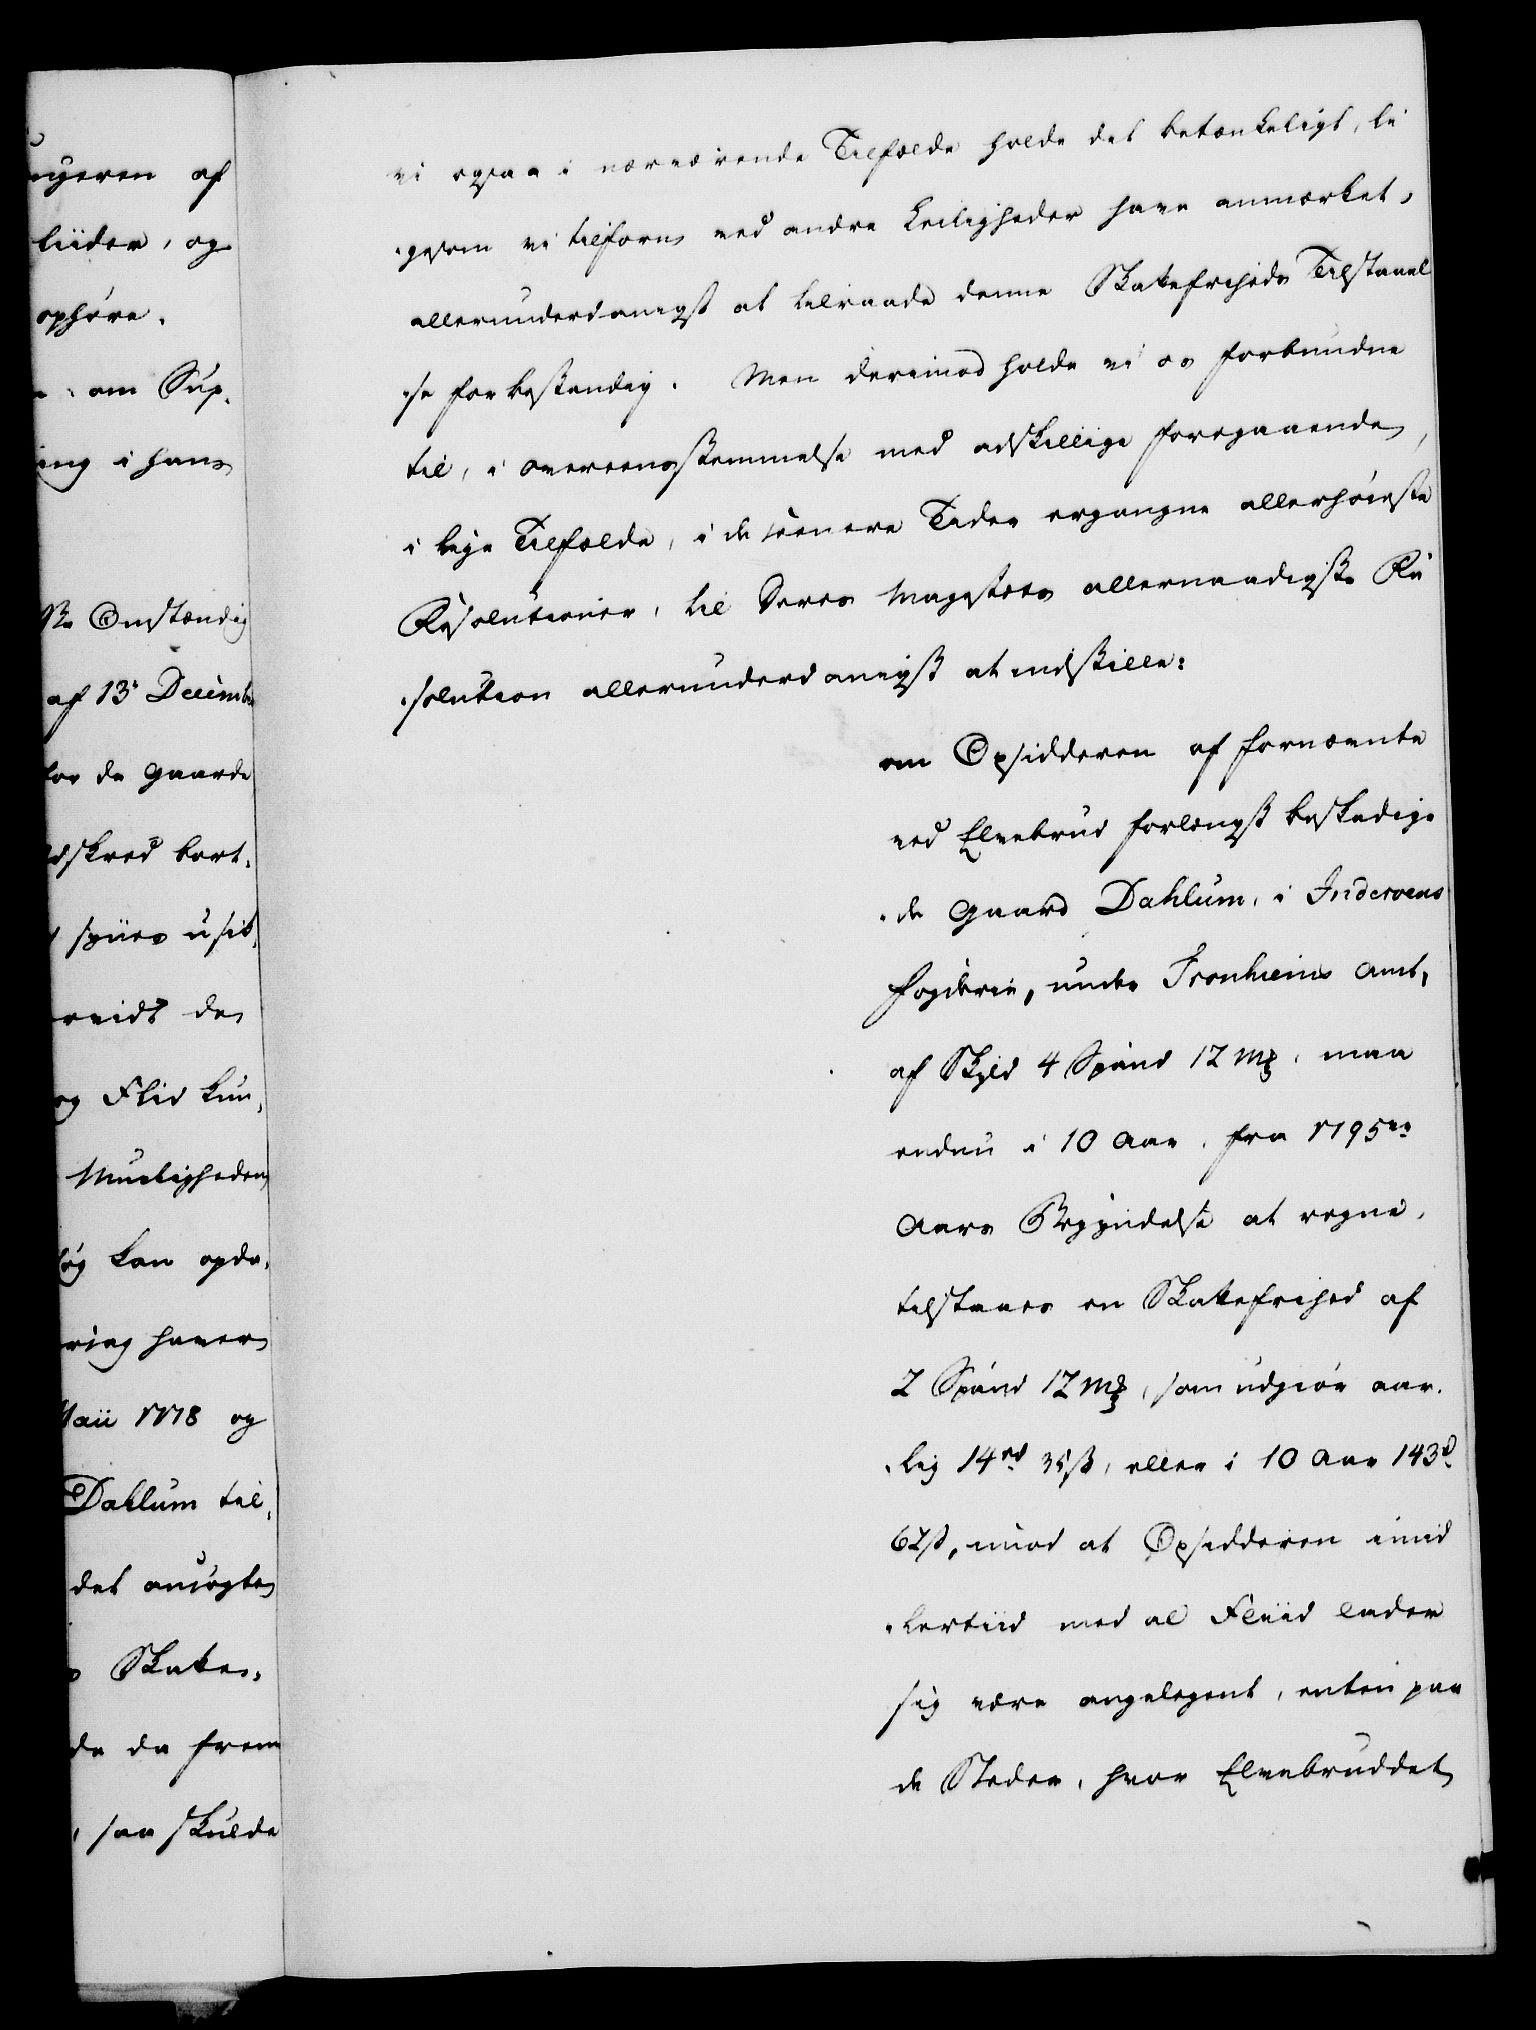 ugeren af
liider, og
ophøre.
om Sup-
ing i hans
ske Omstændig
af 13de Decembr
for de Gaarde
dskred bort-
spiires usit-
rvidt den
og Fliid kun-
Mueligheden
kan opdr-
ring haver
Maii 1778 og
Dahlum til-
det ansøgte
Skatte-
de da frem
saa skulde
vi ogsaa i nærværende Tilfælde holde det betænkeligt, li
-gesom vi tilforn ved andre Leiligheder have anmærket,
allerunderdanigst at tilraade denne Skattefriheds Tilstaael
-se for bestandig. Men derimod holde vi os forbundne
til, i Overeensstemmelse med adskillige foregaaende,
i lige Tilfælde, i de seenere Tider ergangne allerhøieste
Resolutioner, til Deres Majestæts allernaadigste Re
-solution allerunderdanigst at indstille:
om Opsidderen af fornævnte
ved Elvebrud forlængst beskadige
-de Gaard Dahlum, i Inderøens
Fogderie, under Tronhiems Amt,
af Skyld 4 Spand 12 Mk, maa
endnu i 10 Aar, fra 1795de
Aars Begyndelse at regne,
tilstaaes en Skattefrihed af
2 Spand 12 Mk, som udgiør aar-
-lig 14rd 35ß, eller i 10 Aar 143rd
62ß, imod at Opsidderen imid
-lertiid med al Fliid lader
sig være angelegent, enten paa
de Steder, hvor Elvebruddet